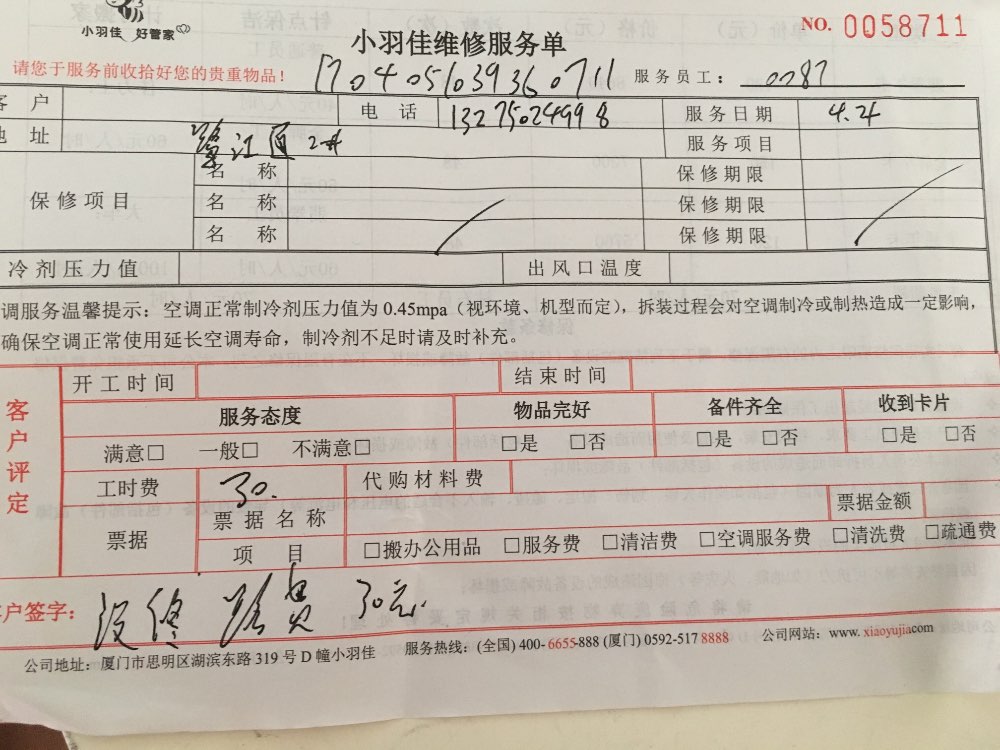 小羽佳 好管家
NO. 0058711
小羽佳维修服务单
请您于服务前收拾好您的贵重物品！
170405103936071 服务员工： 0087
客 户 电 话 13275024998 服务日期 4.24
地 址 江 服务项目
保修项目 名 称 保修期限
名 称 保修期限
名 称 保修期限
冷剂压力值 出风口温度
调服务温馨提示：空调正常制冷剂压力值为 0.45mpa（视环境、机型而定），拆装过程会对空调制冷或制热造成一定影响，
确保空调正常使用延长空调寿命，制冷剂不足时请及时补充。
客户评定
开工时间 结束时间
服务态度 物品完好 备件齐全 收到卡片
满意□ 一般□ 不满意□ □是 □否 □是 □否 □是 □否
工时费 30. 代购材料费
票据 票据名称 票据金额
项 目 □搬办公用品 □服务费 □清洁费 □空调服务费 □清洗费 □疏通费
客户签字： 没修 路费 30元.
公司地址：厦门市思明区湖滨东路 319 号 D 幢小羽佳 服务热线：(全国) 400-6655-888 (厦门) 0592-517 8888 公司网站：www.xiaoyujia.com